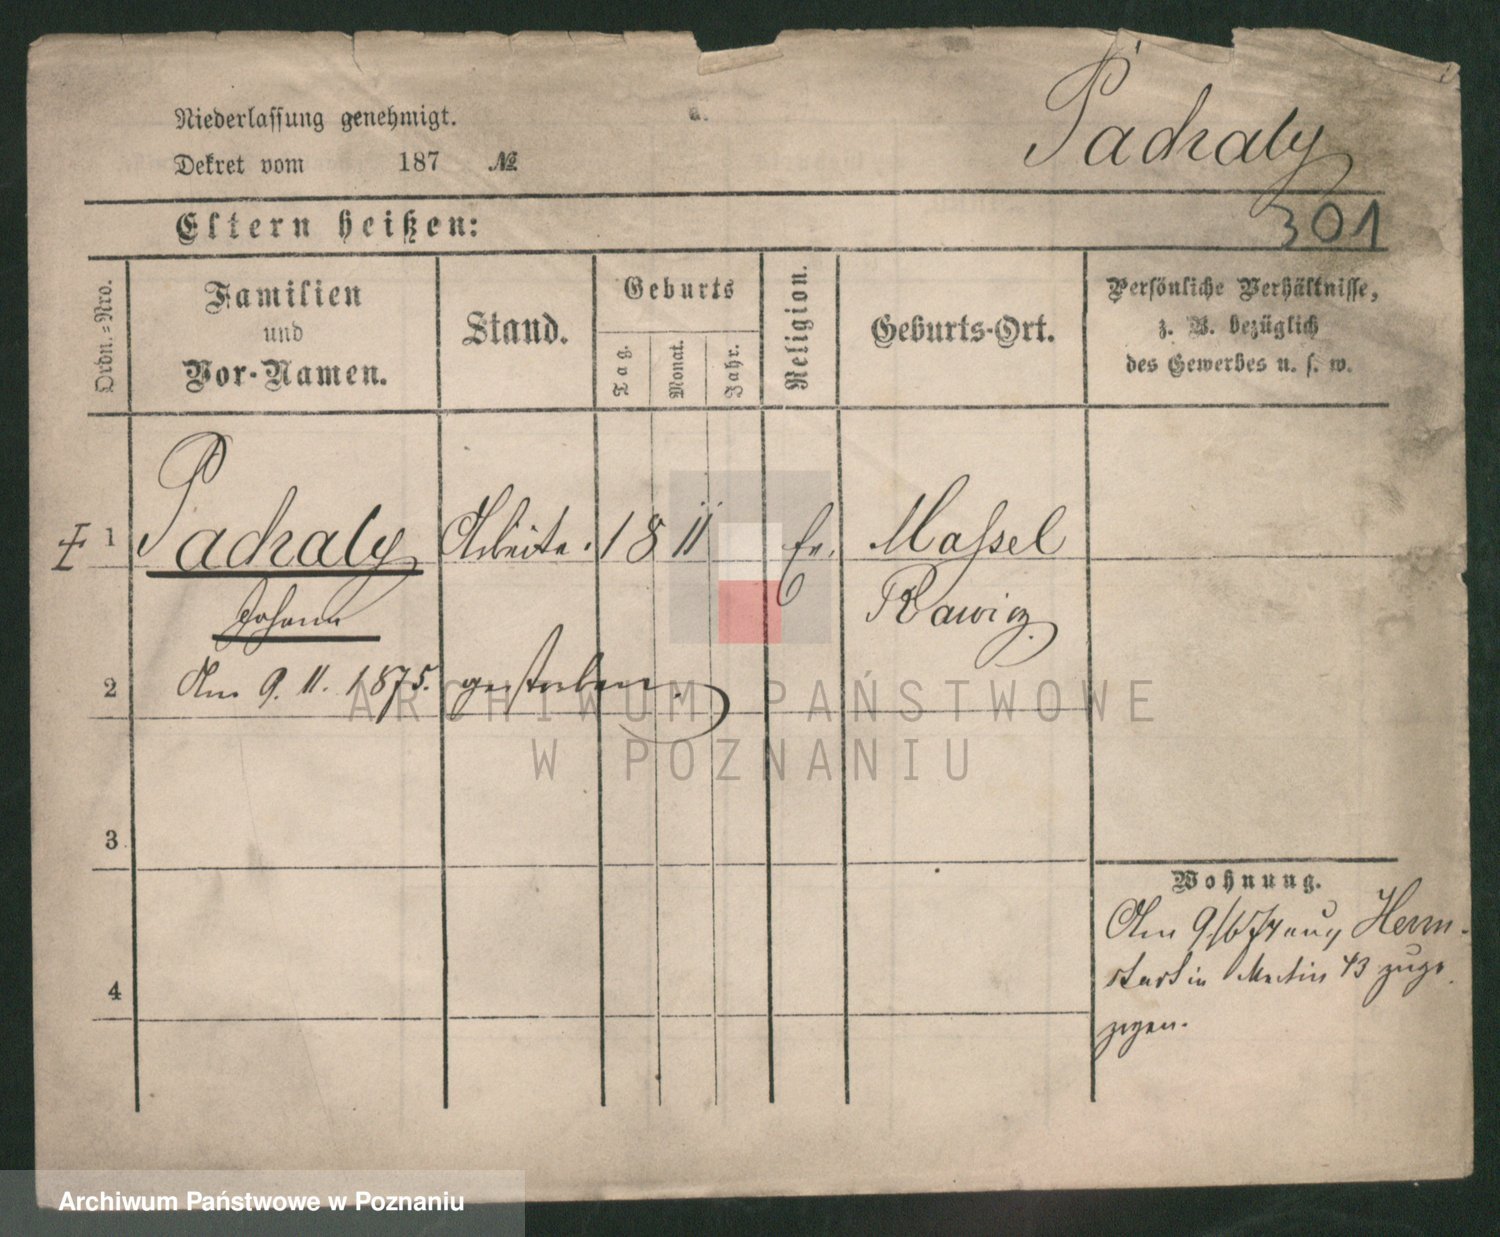 Pachaly
Niederlassung genehmigt.
Dekret vom 187 №
301
Eltern heißen:
Ordn.=Nro.
Familien
und
Vor-Namen.
Stand.
Geburts
Tag.
Monat.
Jahr.
Religion.
Geburts-Ort.
Persönliche Verhältnisse,
z. B. bezüglich
des Gewerbes u. s. w.
1 Pachaly Arbeiter 1811 Ev. Massel
Johann Rawicz
2 Am 9. 11. 1875. gestorben.
3
Wohnung.
Am 9/6 74 aus Herrn-
stadt in Martin 43 zuge
zogen.
4
ARCHIWUM PAŃSTWOWE
W POZNANIU
Archiwum Państwowe w Poznaniu